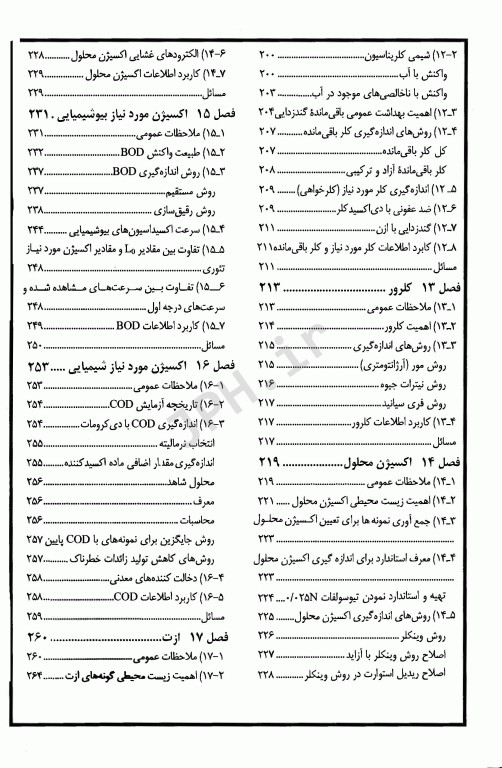 ۱۲-۲) شیمی کلریناسیون ........ ۲۰۰
واکنش با آب ........ ۲۰۰
واکنش با ناخالصی‌های موجود در آب ........ ۲۰۳
۱۲-۳) اهمیت بهداشت عمومی باقی‌ماندهٔ گندزدایی ۲۰۴
۱۲-۴) روش‌های اندازه‌گیری کلر باقی‌مانده ........ ۲۰۷
کل کلر باقی‌مانده ........ ۲۰۷
کلر باقی‌ماندهٔ آزاد و ترکیبی ........ ۲۰۸
۱۲-۵) اندازه‌گیری کلر مورد نیاز (کلرخواهی) ........ ۲۰۹
۱۲-۶) ضد عفونی با دی‌اکسید کلر ........ ۲۰۹
۱۲-۷) گندزدایی با ازن ........ ۲۱۱
۱۲-۸) کابرد اطلاعات کلر مورد نیاز و کلر باقی‌مانده ۲۱۱
مسائل ........ ۲۱۱
فصل ۱۳ کلرور ........ ۲۱۳
۱۳-۱) ملاحظات عمومی ........ ۲۱۳
۱۳-۲) اهمیت کلرور ........ ۲۱۴
۱۳-۳) روش‌های اندازه‌گیری ........ ۲۱۵
روش مور (آرژانتومتری) ........ ۲۱۵
روش نیترات جیوه ........ ۲۱۶
روش فری سیانید ........ ۲۱۷
۱۳-۴) کاربرد اطلاعات کلرور ........ ۲۱۷
مسائل ........ ۲۱۷
فصل ۱۴ اکسیژن محلول ........ ۲۱۹
۱۴-۱) ملاحظات عمومی ........ ۲۱۹
۱۴-۲) اهمیت زیست محیطی اکسیژن محلول ........ ۲۲۱
۱۴-۳) جمع آوری نمونه ها برای تعیین اکسیژن محلول
........ ۲۲۳
۱۴-۴) معرف استاندارد برای اندازه گیری اکسیژن محلول
........ ۲۲۳
تهیه و استاندارد نمودن تیوسولفات ۰/۰۲۵N ........ ۲۲۴
۱۴-۵) روش‌های اندازه‌گیری اکسیژن محلول ........ ۲۲۵
روش وینکلر ........ ۲۲۶
اصلاح روش وینکلر با آزاید ........ ۲۲۷
اصلاح ریدیل استوارت در روش وینکلر ........ ۲۲۸
۱۴-۶) الکترودهای غشایی اکسیژن محلول ........ ۲۲۸
۱۴-۷) کاربرد اطلاعات اکسیژن محلول ........ ۲۲۹
مسائل ........ ۲۲۹
فصل ۱۵ اکسیژن مورد نیاز بیوشیمیایی . ۲۳۱
۱۵-۱) ملاحظات عمومی ........ ۲۳۱
۱۵-۲) طبیعت واکنش BOD ........ ۲۳۲
۱۵-۳) روش اندازه‌گیری BOD ........ ۲۳۷
روش مستقیم ........ ۲۳۷
روش رقیق‌سازی ........ ۲۳۸
۱۵-۴) سرعت اکسیداسیون‌های بیوشیمیایی ........ ۲۴۴
۱۵-۵) تفاوت بین مقادیر L₀ و مقادیر اکسیژن مورد نیاز
تئوری ........ ۲۴۸
۱۵-۶) تفاوت بین سرعت‌های مشاهده شده و
سرعت‌های درجه اول ........ ۲۴۸
۱۵-۷) کاربرد اطلاعات BOD ........ ۲۴۹
مسائل ........ ۲۵۰
فصل ۱۶ اکسیژن مورد نیاز شیمیایی ..... ۲۵۳
۱۶-۱) ملاحظات عمومی ........ ۲۵۳
۱۶-۲) تاریخچه آزمایش COD ........ ۲۵۴
۱۶-۳) اندازه‌گیری COD با دی‌کرومات ........ ۲۵۴
انتخاب نرمالیته ........ ۲۵۵
اندازه‌گیری مقدار اضافی ماده اکسیدکننده ........ ۲۵۵
محلول شاهد ........ ۲۵۶
معرف ........ ۲۵۶
محاسبات ........ ۲۵۶
روش جایگزین برای نمونه‌های با COD پایین ۲۵۷
روش‌های کاهش تولید زائدات خطرناک ........ ۲۵۷
۱۶-۴) دخالت کننده‌های معدنی ........ ۲۵۸
۱۶-۵) کاربرد اطلاعات COD ........ ۲۵۸
مسائل ........ ۲۵۹
فصل ۱۷ ازت ........ ۲۶۰
۱۷-۱) ملاحظات عمومی ........ ۲۶۰
۱۷-۲) اهمیت زیست محیطی گونه‌های ازت ........ ۲۶۴